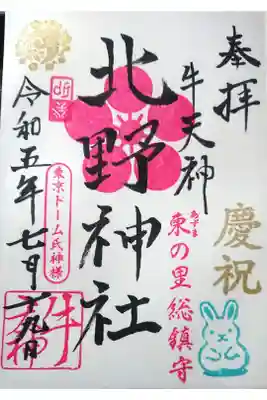 奉拝
慶祝
牛天神
あずま
東の里総鎮守
北野神社
東京ドーム氏神様
令和五年七月十九日
牛天神